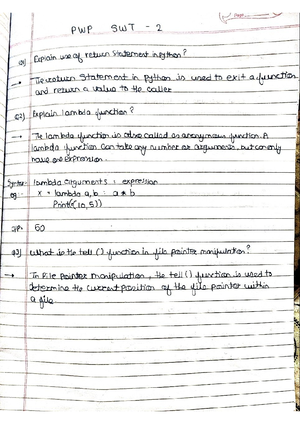 PWP SWT - 2
Q1) Explain use of return statement in python?
→ The return Statement in python is used to exit a function
and return a value to the caller
Q2) Explain lambda function?
→ The lambda function is also called as anonymous function. A
lambda function can take any number of arguments, but can only
have one expression
Syntax- lambda arguments : expression
eg:- x = lambda a, b : a * b
Print(x(10,5))
O/P: 50
Q3) What is the tell() function in file pointer manipulation?
→ In File pointer manipulation, the tell() function is used to
determine the current position of the file pointer within
a file